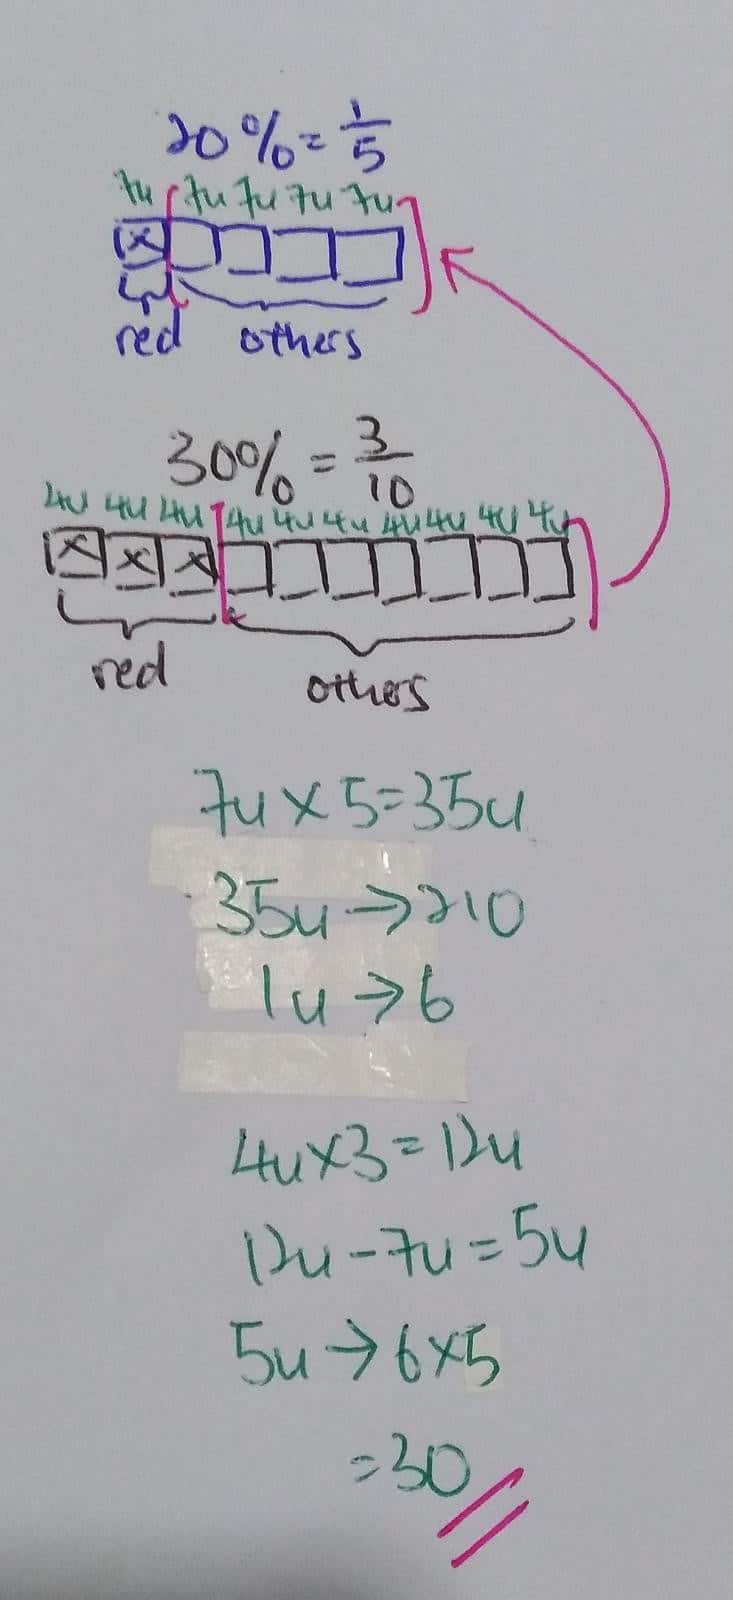 20% = 1/5
7u 7u 7u 7u 7u
x
red others
30% = 3/10
4u 4u 4u 4u 4u 4u 4u 4u 4u 4u
x x x
red others
7u x 5 = 35u
35u → 210
1u → 6
4u x 3 = 12u
12u - 7u = 5u
5u → 6 x 5
= 30